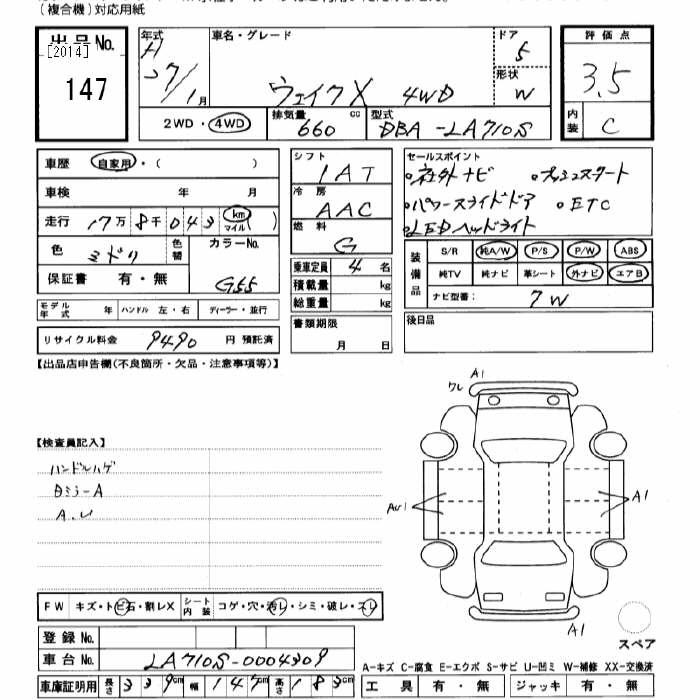 (複合機)対応用紙
出品No.
[2014]
147
年式 H27/1月
車名・グレード
ウェイク X 4WD
ドア 5
形状 W
評価点
3.5
内装 C
2WD・4WD
排気量 660 cc
型式 DBA-LA710S
車歴 自家用・( )
車検 年 月
走行 17万 8千 043 km マイル ( )
色 ミドリ 色替 カラーNo. G55
保証書 有・無
モデル年式 年 ハンドル 左・右 ディーラー・並行
リサイクル料金 9490 円 預託済
シフト IAT
冷房 AAC
燃料 G
乗車定員 4 名
積載量 kg
総重量 kg
書類期限
月 日
セールスポイント
社外ナビ プッシュスタート
パワースライドドア ETC
LEDヘッドライト
装備品 S/R 純A/W P/S P/W ABS
純TV 純ナビ 革シート 外ナビ エアB
ナビ型番: 7W
後日品
【出品店申告欄(不良箇所・欠品・注意事項等)】
【検査員記入】
ハンドルハゲ
Dミラ-A
A.U
A1
ワレ
A1
A1
スペア
FW キズ・トビ石・割レX シート内装 コゲ・穴・汚レ・シミ・破レ・スレ
登録No.
車台No. LA710S-0004309
A-キズ C-腐食 E-エクボ S-サビ U-凹ミ W-補修 XX-交換済
車庫証明用 長さ 339cm 幅 147cm 高さ 183cm
工具 有・無 ジャッキ 有・無